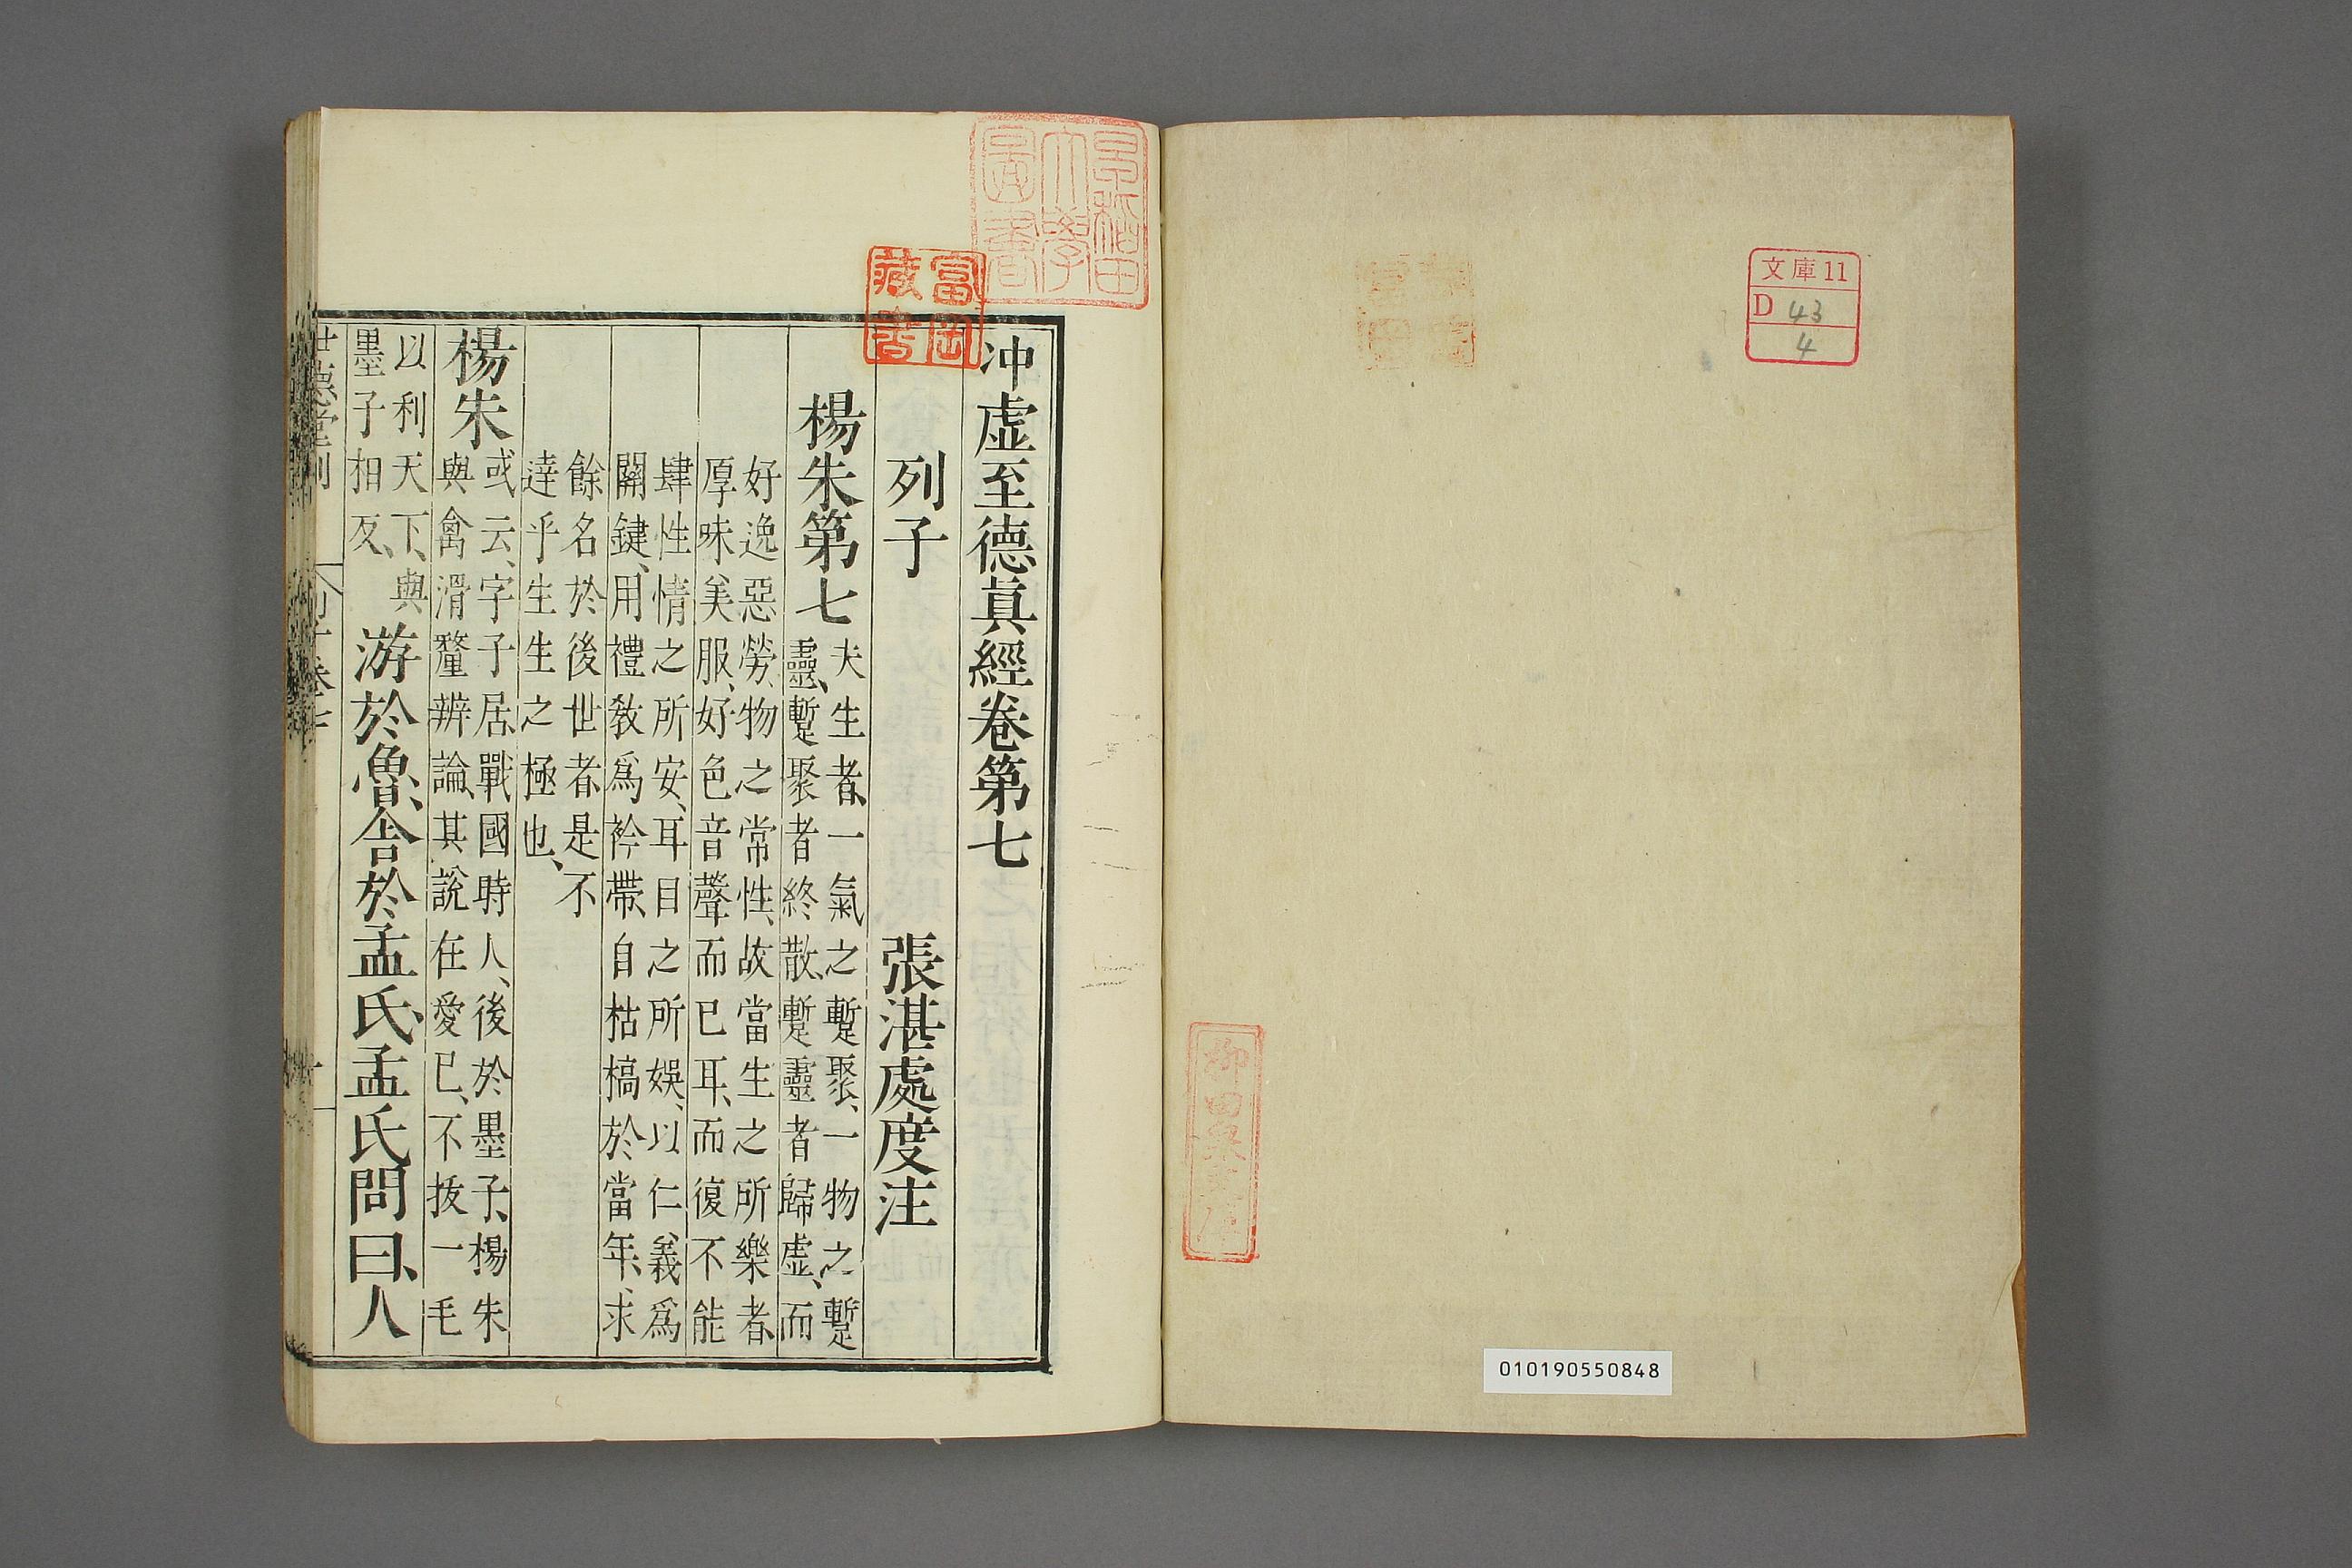 文庫11
D 43
4
柳田泉文庫
010190550848
早稲田大學圖書
富岡藏書
冲虚至德眞經卷第七
列子 張湛處度注
楊朱第七
夫生者、一氣之蹔聚、一物之蹔
靈、蹔聚者終散、蹔靈者歸虚、而
好逸惡勞、物之常性、故當生之所樂者、
厚味美服、好色音聲而已耳、而復不能
肆性情之所安、耳目之所娯、以仁義爲
關鍵、用禮教爲衿帶、自枯槁於當年、求
餘名於後世者、是不
達乎生生之極也、
楊朱
或云、字子居、戰國時人、後於墨子、楊朱
與禽滑釐辨論、其說在愛已、不拔一毛
以利天下、與
墨子相反、
游於魯、舍於孟氏、孟氏問曰、人
世德堂刊
列子卷七
一